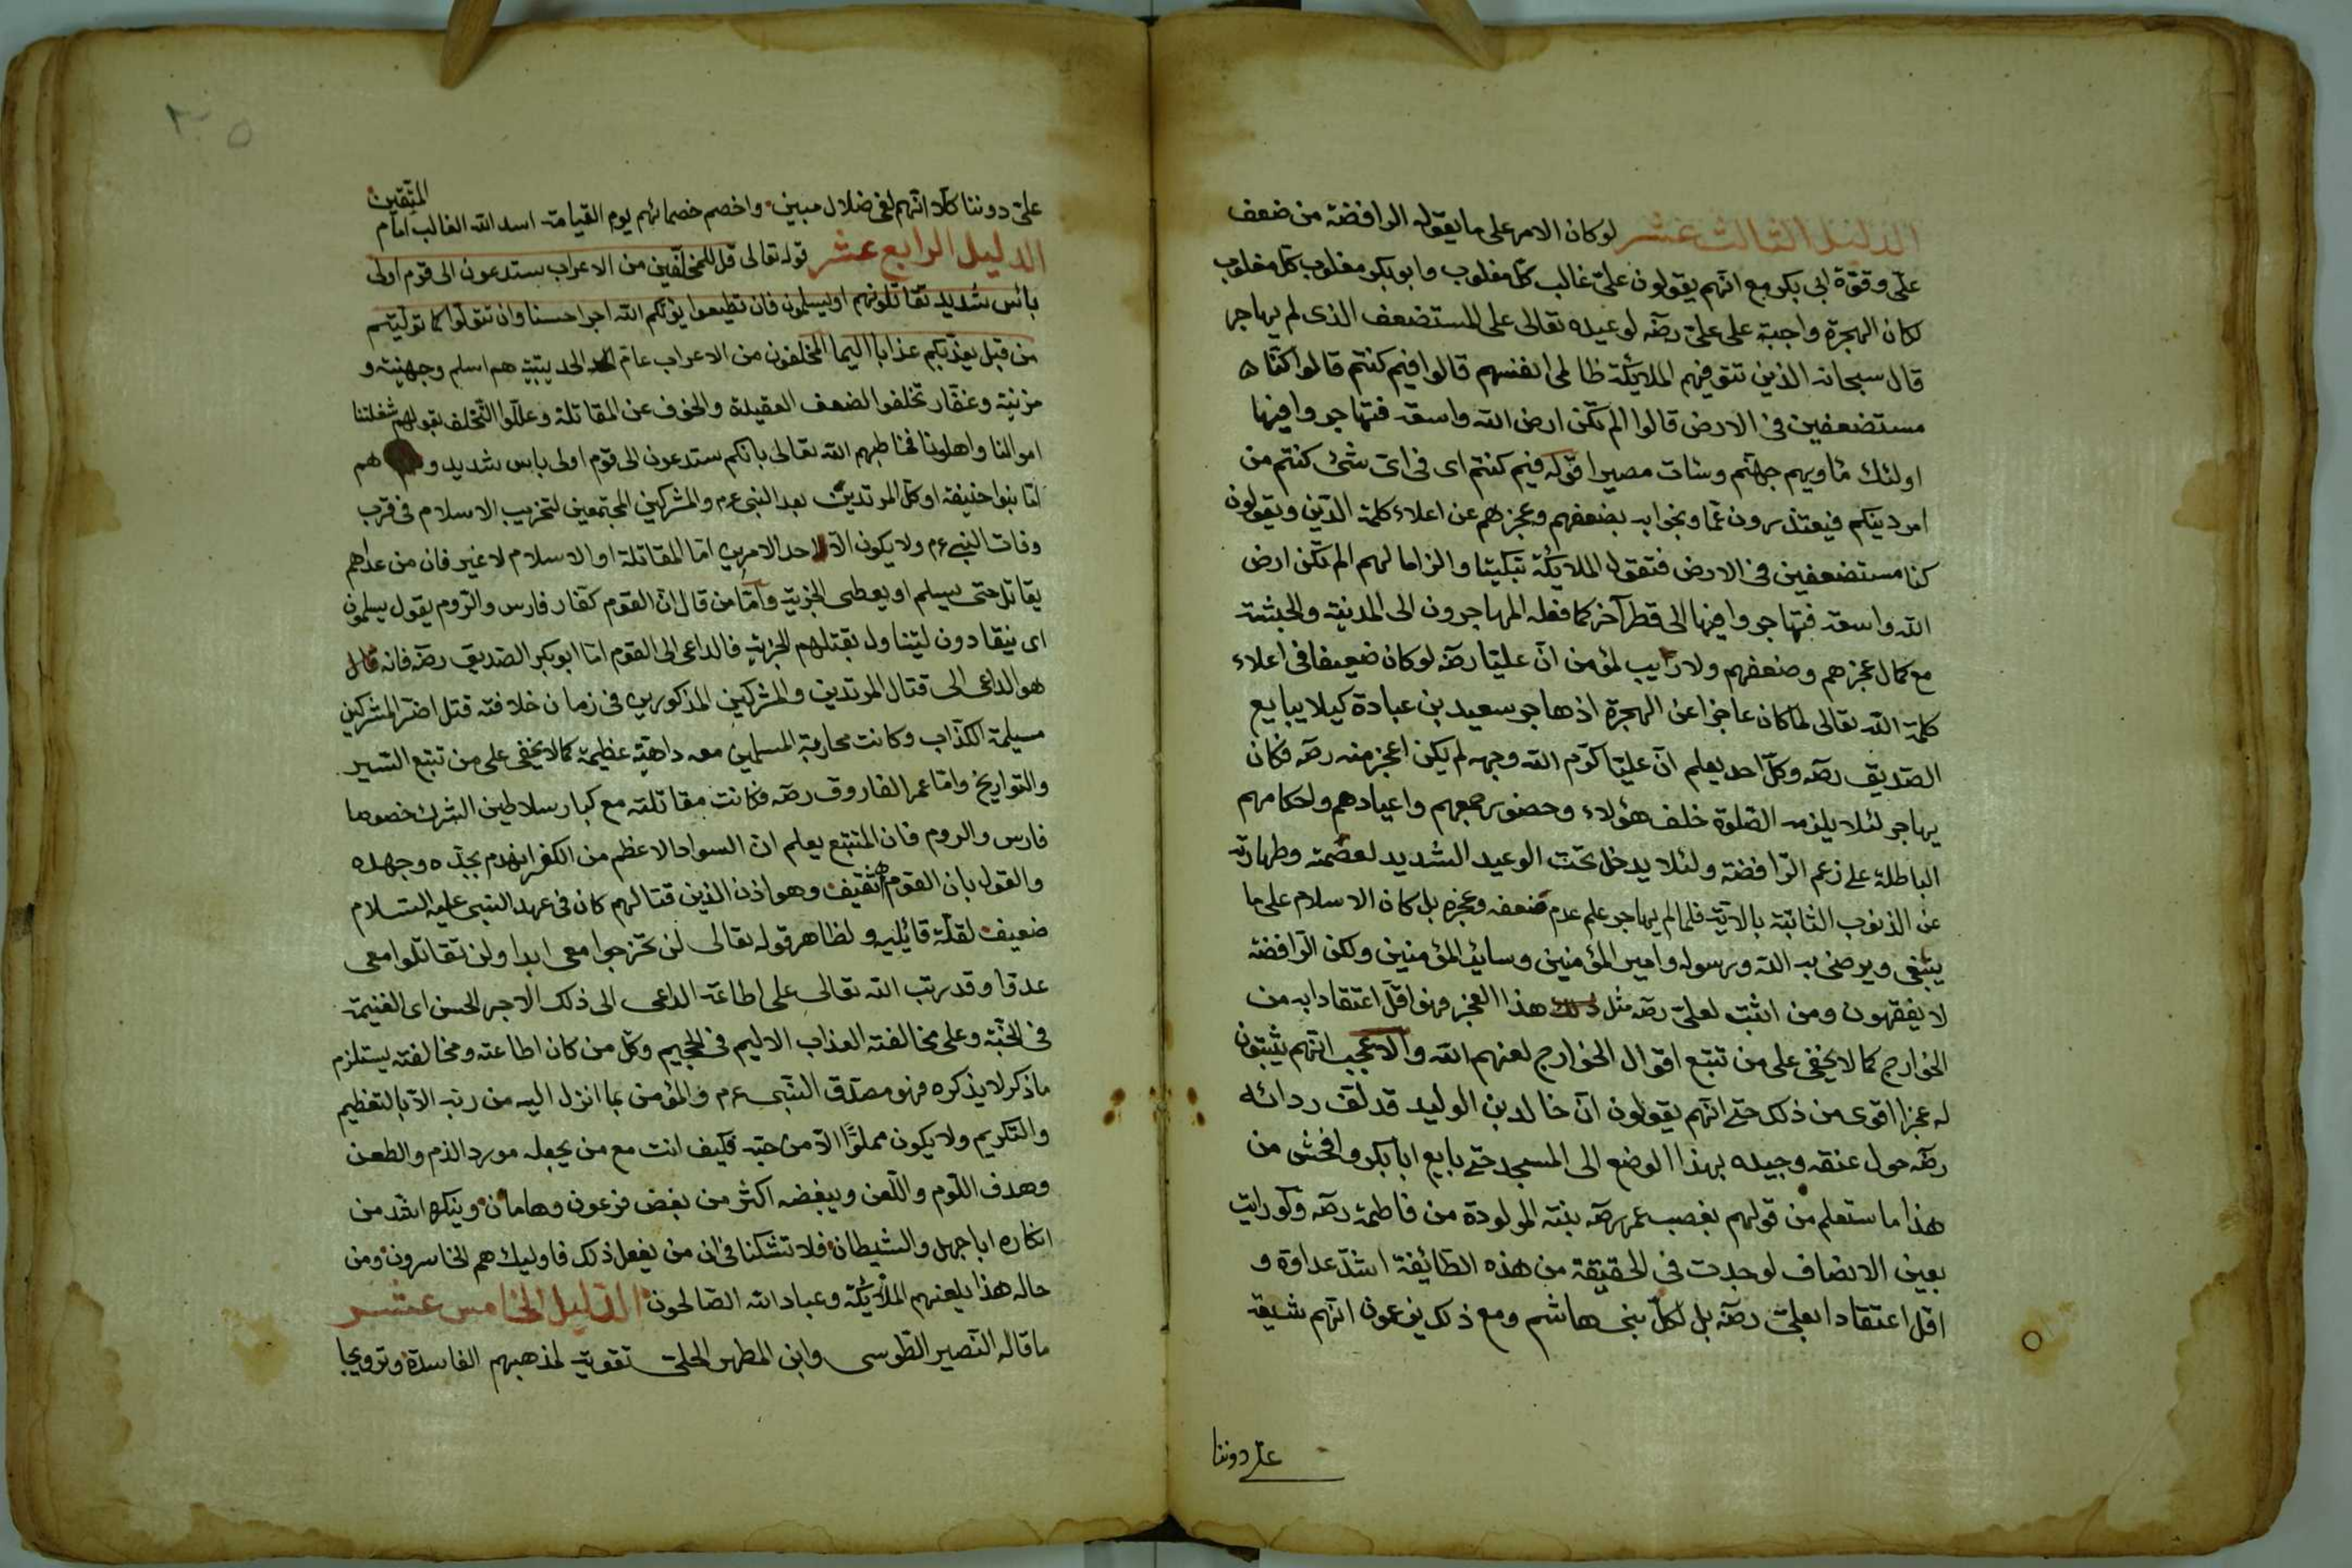 الدليل الثالث عشر لو كان الامر على ما يقوله الرافضة من ضعف
علّى وقوّة ابى بكر مع انّهم يقولون علىّ غالب كلّ مغلوب وابو بكر مغلوب كلّ مغلوب
لكان الهجرة واجبة على علىّ رضه لوعيده تعالى على المستضعف الذى لم يهاجر
قال سبحانه الذين تتوفيهم الملايكة ظالمى انفسهم قالوا فيم كنتم قالوا كنّا
مستضعفين فى الارض قالوا الم تكن ارض الله واسعة فتهاجروا فيها
اولئك مأويهم جهنّم وسات مصيرا قوله فيم كنتم اى فى اىّ شئ كنتم من
امر دينكم فيعتذرون عمّا وبخوا به بضعفهم وعجزهم عن اعلاء كلمة الدّين ويقولون
كنا مستضعفين فى الارض فتقول الملايكة تبكيتا والزاما لهم الم تكن ارض
الله واسعة فتهاجروا فيها الى قطر آخر كما فعله المهاجرون الى المدينة والحبشة
مع كمال عجزهم وضعفهم ولا ريب لمؤمن انّ عليّا رضه لو كان ضعيفا فى اعلاء
كلمة الله تعالى لما كان عاجزا عن الهجرة اذ هاجر سعيد بن عبادة كيلا يبايع
الصّديق رضه وكلّ احد يعلم انّ عليّا كرّم الله وجهه لم يكن اعجز منه رضه فكان
يهاجر لئلا يلزمه الصّلوة خلف هؤلاء وحضور جمعهم واعيادهم ولحكامهم
الباطلة على زعم الرّافضة ولئلا يدخل تحت الوعيد الشديد لعصمته وطهارته
عن الذنوب الثابتة بالآية فلما لم يهاجر علم عدم ضعفه وعجزه بل كان الاسلام على ما
ينبغى ويرضى به الله ورسوله وامير المؤمنين وسائر المؤمنين ولكن الرّافضة
لا يفقهون ومن اثبت لعلىّ رضه مثل هذا العجز فهو اقلّ اعتقادا به من
الخوارج كما لا يخفى على من تتبع اقوال الخوارج لعنهم الله والاعجب انّهم يثبتون
له عجزا اقوى من ذلك حتّى انّهم يقولون انّ خالد بن الوليد قد لفّ ردائه
رضه حول عنقه وجيده بهذا الوضع الى المسجد حتّى بايع ابا بكر وافحش من
هذا ما ستعلم من قولهم بغصب عمر رضه بنته المولودة من فاطمة رضه ولو رايت
بعين الانصاف لوجدت فى الحقيقة من هذه الطّائفة اشدّ عداوة و
اقلّ اعتقادا بعلىّ رضه بل لكلّ بنى هاشم ومع ذلك يزعمون انّهم شيعة
علىّ دوننا
علىّ دوننا كلّا انّهم لفى ضلال مبين واخصم خصمائهم يوم القيامة اسد الله الغالب امام
المتّقين
الدليل الرابع عشر قوله تعالى قل للمخلّفين من الاعراب ستدعون الى قوم اولى
بأس شديد تقاتلونهم او يسلمون فان تطيعوا يؤتكم الله اجرا حسنا وان تتولّوا كما تولّيتم
من قبل يعذّبكم عذابا اليما المخلفون من الاعراب عام الحديبيّة هم اسلم وجهنية و
مزنية وغفّار تخلفوا لضعف العقيدة والخوف عن المقاتلة وعلّلوا التّخلف بقولهم شغلتنا
اموالنا واهلونا فخاطبهم الله تعالى بانكم ستدعون الى قوم اولى باس شديد و هم
امّا بنوا حنيفة او كلّ المرتدين بعد النبى عم والمشركين المجتمعين لتخريب الاسلام فى قرب
وفات النبى عم ولا يكون الّا احد الامرين امّا المقاتلة او الاسلام لا غير فان من عداهم
يقاتل حتى يسلم او يعطى الجزية وامّا من قال انّ القوم كفّار فارس والرّوم يقول يسلمون
اى ينقادون ليتناول بقتلهم الجزية فالداعى الى القوم امّا ابو بكر الصّديق رضه فانه قال
هو الداعى الى قتال المرتدين والمشركين المذكورين فى زمان خلافته قتل اضرّ المشركين
مسيلمة الكذّاب وكانت محاربة المسلمين معه داهية عظيمة كما لا يخفى على من تتبع السّير
والتواريخ وامّا عمر الفاروق رضه فكانت مقاتلته مع كبار سلاطين الشرك خصوصا
فارس والروم فان المتتبع يعلم ان السواد الاعظم من الكفر انهدم بجدّه وجهده
والقول بان القوم ثقيف وهوازن الذين قتالهم كان فى عهد النبى عليه السّلام
ضعيف لقلّة قائليه ولظاهر قوله تعالى لن تخرجوا معى ابدا ولن تقاتلوا معى
عدوّا وقد رتب الله تعالى على اطاعة الداعى الى ذلك الاجر الحسن اى الغنيمة
فى الجنّة وعلى مخالفته العذاب الاليم فى الجحيم وكلّ من كان اطاعته ومخالفته يستلزم
ما ذكر لا يذكره فهو مصدّق النّبى عم والمؤمن بما انزل اليه من ربّه الّا بالتعظيم
والتكريم ولا يكون مملوّا الّا من حبّه فكيف انت مع من يجعله مورد الذم والطعن
وهدف اللّوم واللّعن ويبغضه اكثر من بغض فرعون وهامان وينكره اشدّ من
انكاره ابا جهل والشيطان فلا تشكنا فى ان من يفعل ذلك فاوليك هم الخاسرون ومن
حاله هذا يلعنهم الملايكة وعباد الله الصّالحون الدّليل الخامس عشر
ما قاله النّصير الطّوسى وابن المطهر الحلىّ تقوية لمذهبهم الفاسدة وترويجا